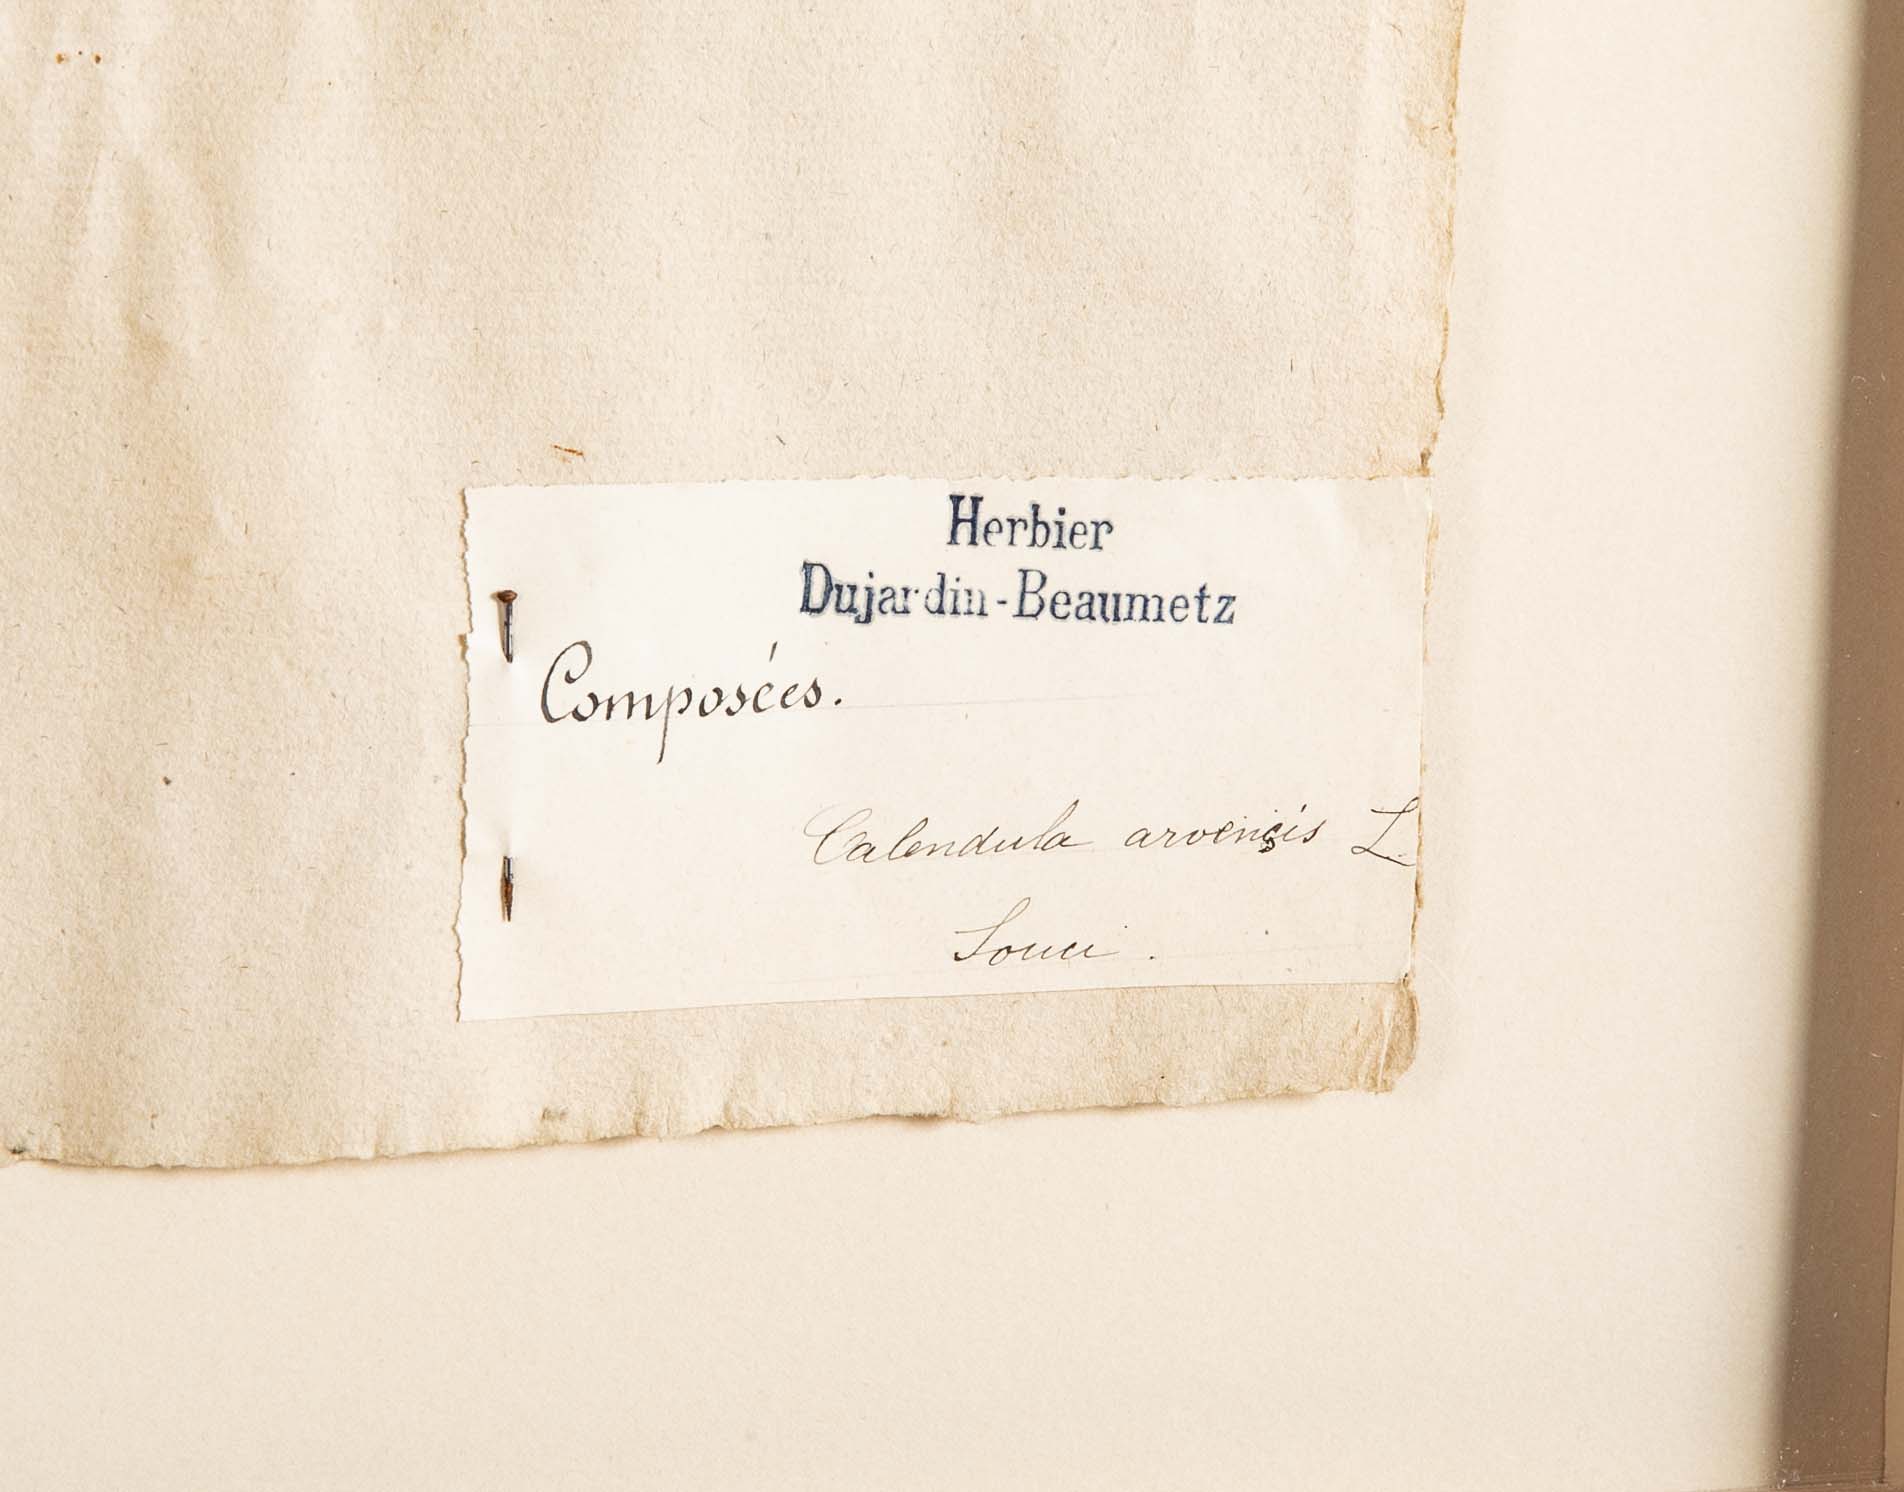 Herbier
Dujardin-Beaumetz
Composées.
Calendula arvensis L.
Souci.